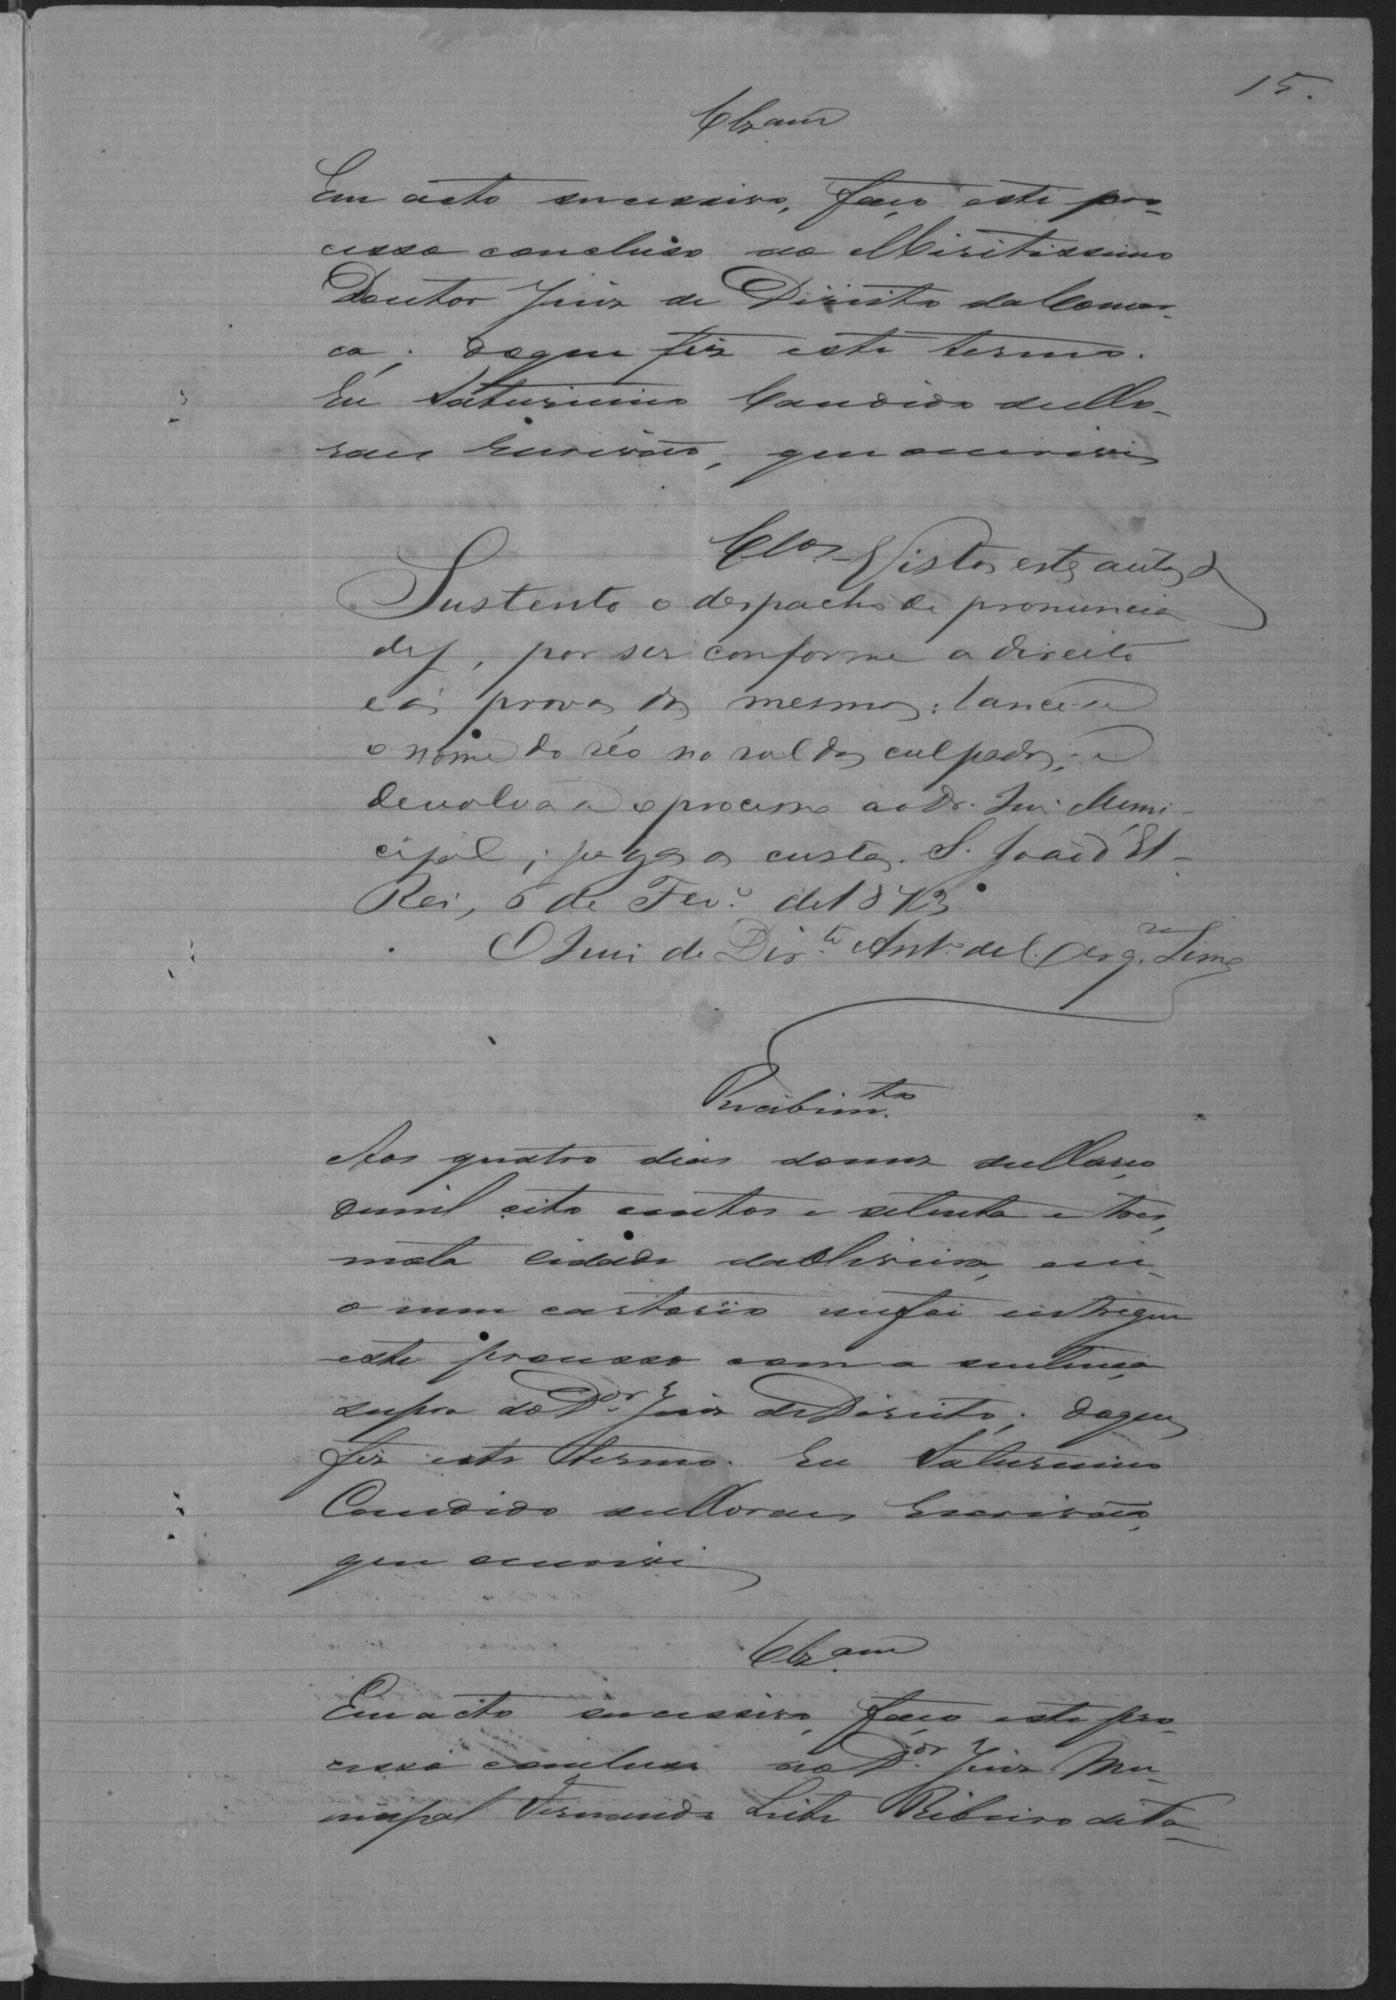 15.
Clzam
Em acto sucessivo, faço este pro-
cesso concluso ao Miritissimo
Doutor Juiz de Direito da Comar-
ca; do que fiz este termo.
Eu Saturnino Candido de Mo-
raes Escrivão, que o escrivi
Clos Vistos estes autos &
Sustento o despacho de pronuncia
de f, por ser conforme a direito
e ás provas dos mesmos: lance-se
o nome do réo no rol dos culpados; e
devolva-se o processo ao Dr. Juiz Muni-
cipal; pagas as custas. S. João d'El-
Rei, 6 de Fev.º de 1873
O Juiz de Dir.to Ant.º de Cerq.ra Lima
Recibim.to
Aos quatro dias do mez de Março,
de mil oito centos e setenta e tres,
nesta Cidade da Oliveira, em
o meu cartorio me foi entregue
este processo com a sentença
supra do D.or Juiz de Direito; do que
fiz este termo. Eu Saturnino
Candido de Moraes Escrivão,
que o escrivi
Clzam
Em acto sucessivo, faço este pro-
cesso concluso ao D.or Juiz Mu-
nicipal Fernando Leite Ribeiro de Fa-